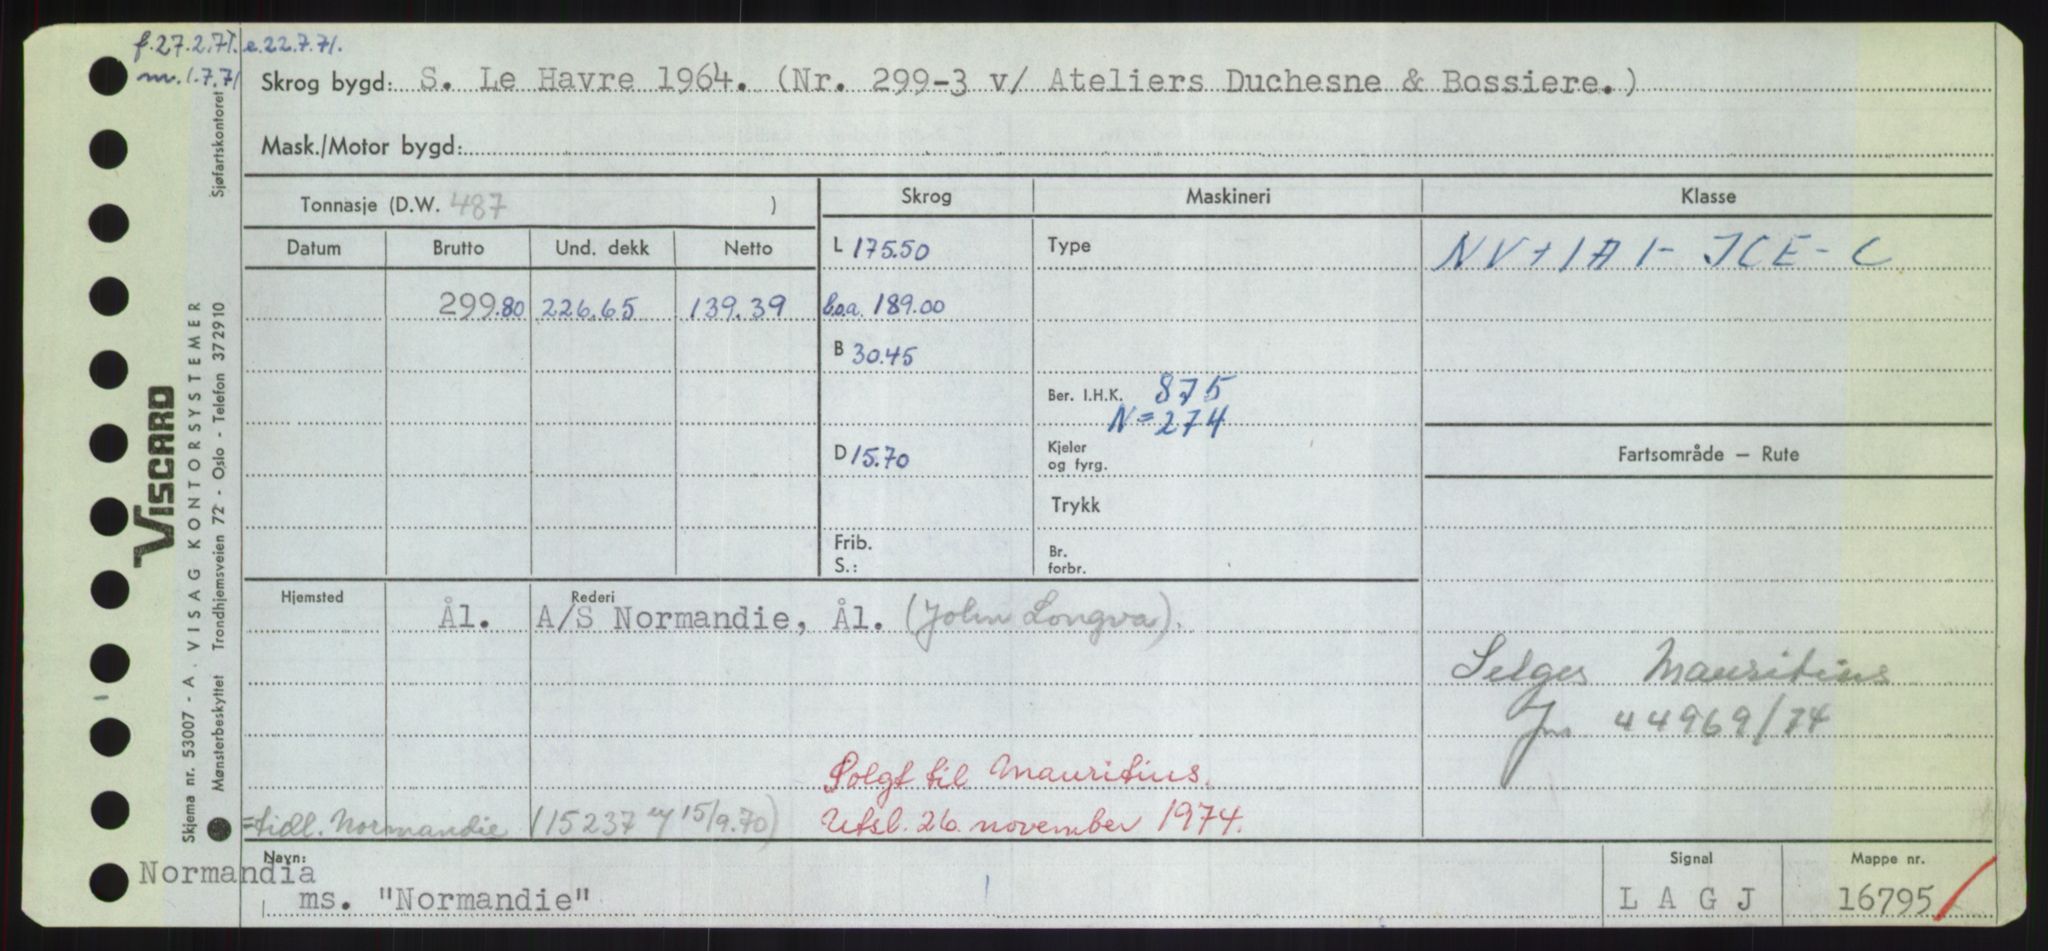 f.27.2.71. e.22.7.71.
m. 1.7.71
Skrog bygd: S. Le Havre 1964. (Nr. 299-3 v/ Ateliers Duchesne & Bossiere.)
Mask./Motor bygd:
Tonnasje (D.W. 487 )
Skrog Maskineri Klasse
Datum Brutto Und. dekk Netto
L 175.50 Type NV+1A1- ICE-C
299.80 226.65 139.39 l.o.a. 189.00
B 30.45
Ber. I.H.K. 875
N=274
D 15.70 Kjeler og fyrg. Fartsområde — Rute
Trykk
Frib. S.: Br. forbr.
Hjemsted Rederi
Ål. A/S Normandie, Ål. (John Longva).
Selges Mauritius
Jnr 44969/74
Solgt til Mauritius.
= tidl. Normandie (15237 15/9.70) Utsl. 26. november 1974.
Navn: Signal Mappe nr.
Normandia
ms. "Normandie" L A G J 16795
VISCARD
Skjema nr. 53007 - A. VISAG KONTORSYSTEMER
Mønsterbeskyttet Trondhjemsveien 72 - Oslo - Telefon 372910 Sjøfartskontoret